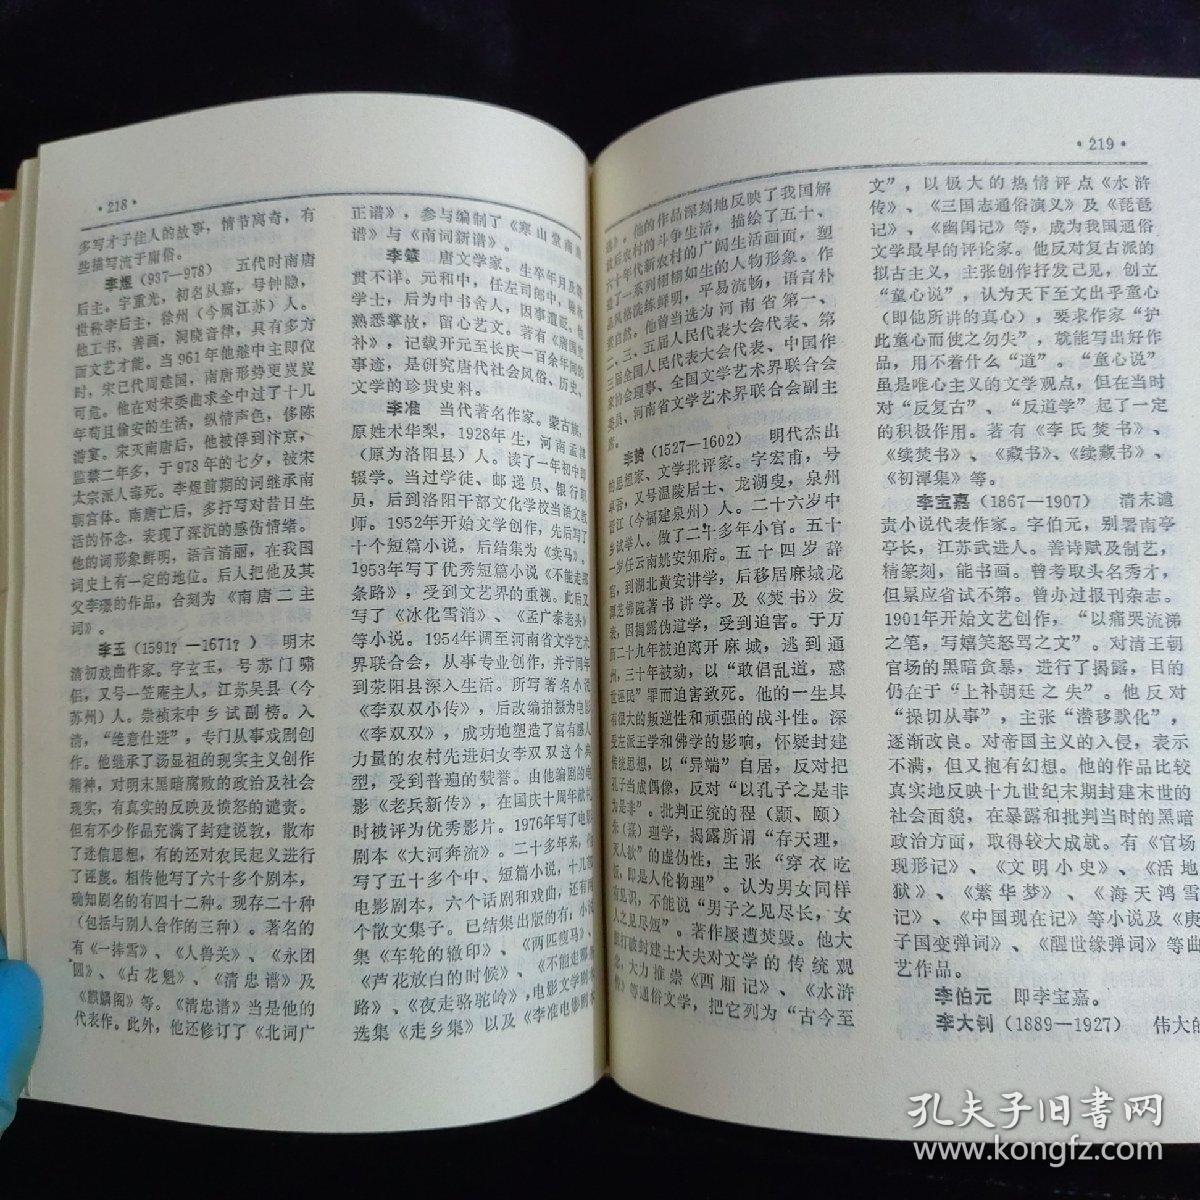 ·218·
多写才子佳人的故事，情节离奇，有
些描写流于庸俗。
李煜（937—978） 五代时南唐
后主。字重光，初名从嘉，号钟隐，
世称李后主，徐州（今属江苏）人。
他工书，善画，洞晓音律，具有多方
面文艺才能。当961年他继中主即位
时，宋已代周建国，南唐形势更岌岌
可危。他在对宋委曲求全中过了十几
年苟且偷安的生活，纵情声色，侈陈
游宴。宋灭南唐后，他被俘到汴京，
监禁二年多，于978年的七夕，被宋
太宗派人毒死。李煜前期的词继承南
朝宫体。南唐亡后，多抒写对昔日生
活的怀念，表现了深沉的感伤情绪。
他的词形象鲜明，语言清丽，在我国
词史上有一定的地位。后人把他及其
父李璟的作品，合刻为《南唐二主
词》。
李玉（1591？—1671？） 明末
清初戏曲作家。字玄玉，号苏门啸
侣，又号一笠庵主人，江苏吴县（今
苏州）人。崇祯末中乡试副榜。入
清，“绝意仕进”，专门从事戏剧创
作。他继承了汤显祖的现实主义创作
精神，对明末黑暗腐败的政治及社会
现实，有真实的反映及愤怒的谴责。
但有不少作品充满了封建说教，散布
了迷信思想，有的还对农民起义进行
了诬蔑。相传他写了六十多个剧本，
确知剧名的有四十二种。现存二十种
（包括与别人合作的三种）。著名的
有《一捧雪》、《人兽关》、《永团
圆》、《占花魁》、《清忠谱》及
《麒麟阁》等。《清忠谱》当是他的
代表作。此外，他还修订了《北词广
正谱》，参与编制了《寒山堂南曲
谱》与《南词新谱》。
李肇 唐文学家。生卒年月及籍
贯不详。元和中，任左司郎中，翰林
学士，后为中书舍人，因事遭贬。他
熟悉掌故，留心艺文。著有《唐国史
补》，记载开元至长庆一百余年间的
事迹，是研究唐代社会风俗、历史、
文学的珍贵史料。
李准 当代著名作家。蒙古族，
原姓木华梨，1928年生，河南孟津
（原为洛阳县）人。读了一年初中即
辍学。当过学徒、邮递员、银行职
员，后到洛阳干部文化学校当语文教
师。1952年开始文学创作，先后写了
十个短篇小说，后结集为《卖马》。
1953年写了优秀短篇小说《不能走那
条路》，受到文艺界的重视。此后又
写了《冰化雪消》、《孟广泰老头》
等小说。1954年调至河南省文学艺术
界联合会，从事专业创作，并于同年
到荥阳县深入生活。所写著名小说
《李双双小传》，后改编拍摄为电影
《李双双》，成功地塑造了富有感人
力量的农村先进妇女李双双这个典
型，受到普遍的赞誉。由他编剧的电
影《老兵新传》，在国庆十周年献礼
时被评为优秀影片。1976年写了电影
剧本《大河奔流》。二十多年来，他
写了五十多个中、短篇小说，十几部
电影剧本，六个话剧和戏曲，还有两
个散文集子。已结集出版的有：小说
集《车轮的辙印》、《两匹瘦马》、
《芦花放白的时候》、《不能走那条
路》、《夜走骆驼岭》，电影文学剧本
选集《走乡集》以及《李准电影剧本
·219·
选》。他的作品深刻地反映了我国解
放后农村的斗争生活，描绘了五十、
六十年代新农村的广阔生活画面，塑
造了一系列栩栩如生的人物形象。作
品风格洗练鲜明，平易流畅，语言朴
素自然。他曾当选为河南省第一、
二、三、五届人民代表大会代表、第
三届全国人民代表大会代表、中国作
家协会理事、全国文学艺术界联合会
委员、河南省文学艺术界联合会副主
席。
李贽（1527—1602） 明代杰出
的思想家、文学批评家。字宏甫，号
卓吾，又号温陵居士、龙湖叟，泉州
晋江（今福建泉州）人。二十六岁中
乡试举人。做了二十多年小官。五十
一岁任云南姚安知府。五十四岁辞
官，到湖北黄安讲学，后移居麻城龙
潭芝佛院著书讲学。及《焚书》发
表，因揭露伪道学，受到迫害。于万
历二十九年被迫离开麻城，逃到通
州，三十年被劾，以“敢倡乱道，惑
世诬民”罪而迫害致死。他的一生具
有很大的叛逆性和顽强的战斗性。深
受左派王学和佛学的影响，怀疑封建
传统思想，以“异端”自居，反对把
孔子当成偶像，反对“以孔子之是非
为是非”。批判正统的程（颢、颐）
朱（熹）理学，揭露所谓“存天理，
灭人欲”的虚伪性，主张“穿衣吃
饭，即是人伦物理”。认为男女同样
有见识，不能说“男子之见尽长，女
人之见尽短”。著作屡遭焚毁。他大
胆打破封建士大夫对文学的传统观
念，大力推崇《西厢记》、《水浒
传》等通俗文学，把它列为“古今至
文”，以极大的热情评点《水浒
传》、《三国志通俗演义》及《琵琶
记》、《幽闺记》等，成为我国通俗
文学最早的评论家。他反对复古派的
拟古主义，主张创作抒发己见，创立
“童心说”，认为天下至文出乎童心
（即他所讲的真心），要求作家“护
此童心而使之勿失”，就能写出好作
品，用不着什么“道”。“童心说”
虽是唯心主义的文学观点，但在当时
对“反复古”、“反道学”起了一定
的积极作用。著有《李氏焚书》、
《续焚书》、《藏书》、《续藏书》、
《初潭集》等。
李宝嘉（1867—1907） 清末谴
责小说代表作家。字伯元，别署南亭
亭长，江苏武进人。善诗赋及制艺，
精篆刻，能书画。曾考取头名秀才，
但累应省试不第。曾办过报刊杂志。
1901年开始文艺创作，“以痛哭流涕
之笔，写嬉笑怒骂之文”，对清王朝
官场的黑暗贪暴，进行了揭露，目的
仍在于“上补朝廷之失”。他反对
“操切从事”，主张“潜移默化”，
逐渐改良。对帝国主义的入侵，表示
不满，但又抱有幻想。他的作品比较
真实地反映十九世纪末期封建末世的
社会面貌，在暴露和批判当时的黑暗
政治方面，取得较大成就。有《官场
现形记》、《文明小史》、《活地
狱》、《繁华梦》、《海天鸿雪
记》、《中国现在记》等小说及《庚
子国变弹词》、《醒世缘弹词》等曲
艺作品。
李伯元 即李宝嘉。
李大钊（1889—1927） 伟大的
孔夫子旧书网
www.kongfz.com